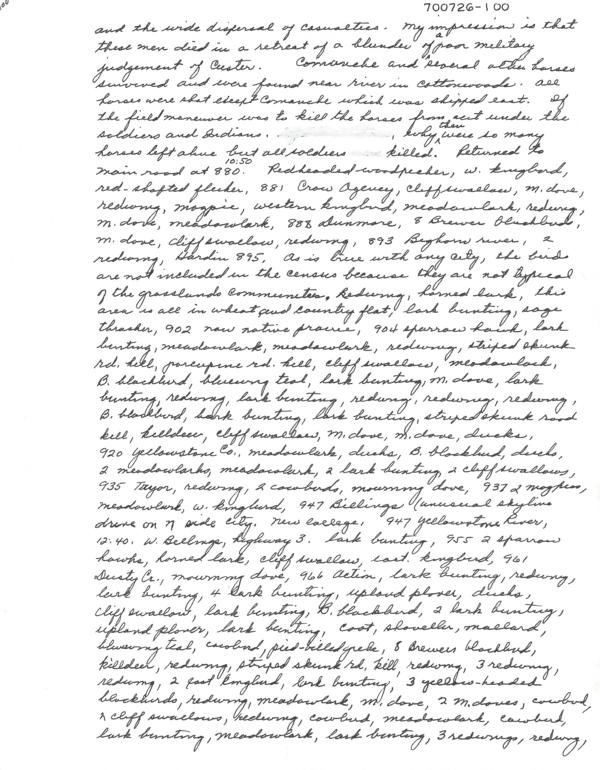 700726-100
and the wide dispersal of casualties. My impression is that
these men died in a retreat of a blunder of a poor military
judgement of Custer. Comanche and several other horses
survived and were found near river in cottonwoods. All
horses were shot except Comanche which was shipped east. If
the field maneuver was to kill the horses from out under the
soldiers and Indians. . , why then were so many
horses left alive but all soldiers killed. Returned to
main road at 880. 10:50 Redheaded woodpecker, w. kingbird,
red-shafted flicker, 881 Crow Agency, cliff swallow, m. dove,
redwing, magpie, western kingbird, meadowlark, redwing,
m. dove, meadowlark, 888 Dunmore, 8 Brewer blackbirds,
m. dove, cliff swallow, redwing, 893 Bighorn river, 2
redwing, Hardin 895. As is true with any city, the birds
are not included in the census because they are not typical
of the grasslands communities. Redwing, horned lark, this
area is all in wheat and country flat, lark bunting, sage
thrasher, 902 now native prairie, 904 sparrow hawk, lark
bunting, meadowlark, meadowlark, redwing, striped skunk
rd. kill, porcupine rd. kill, cliff swallow, meadowlark,
B. blackbird, bluewing teal, lark bunting, m. dove, lark
bunting, redwing, lark bunting, redwing, redwing, redwing,
B. blackbird, lark bunting, lark bunting, striped skunk road
kill, killdeer, cliff swallow, m. dove, m. dove, ducks,
920 Yellowstone Co., meadowlark, ducks, B. blackbird, ducks,
2 meadowlarks, meadowlark, 2 lark bunting, 2 cliff swallows,
935 redwing, 2 cowbirds, mourning dove, 937 2 magpies,
meadowlark, w. kingbird, 947 Billings (unusual skyline
drive on n side city. New college. 947 Yellowstone River,
12:40. W. Billings, highway 3. lark bunting, 955 2 sparrow
hawks, horned lark, cliff swallow, east. kingbird, 961
Dusty Cr., mourning dove, 966 Acton, lark bunting, redwing,
lark bunting, 4 lark bunting, upland plover, ducks,
cliff swallow, lark bunting, B. blackbird, 2 lark bunting,
upland plover, lark bunting, coot, shoveller, mallard,
bluewing teal, cowbird, pied-billed grebe, 8 Brewers blackbird,
killdeer, redwing, striped skunk rd. kill, redwing, 3 redwing,
redwing, 2 east kingbird, lark bunting, 3 yellow-headed
blackbirds, redwing, meadowlark, m. dove, 2 m. doves, cowbird,
cliff swallows, redwing, cowbird, meadowlark, cowbird,
lark bunting, meadowlark, lark bunting, 3 redwings, redwing,